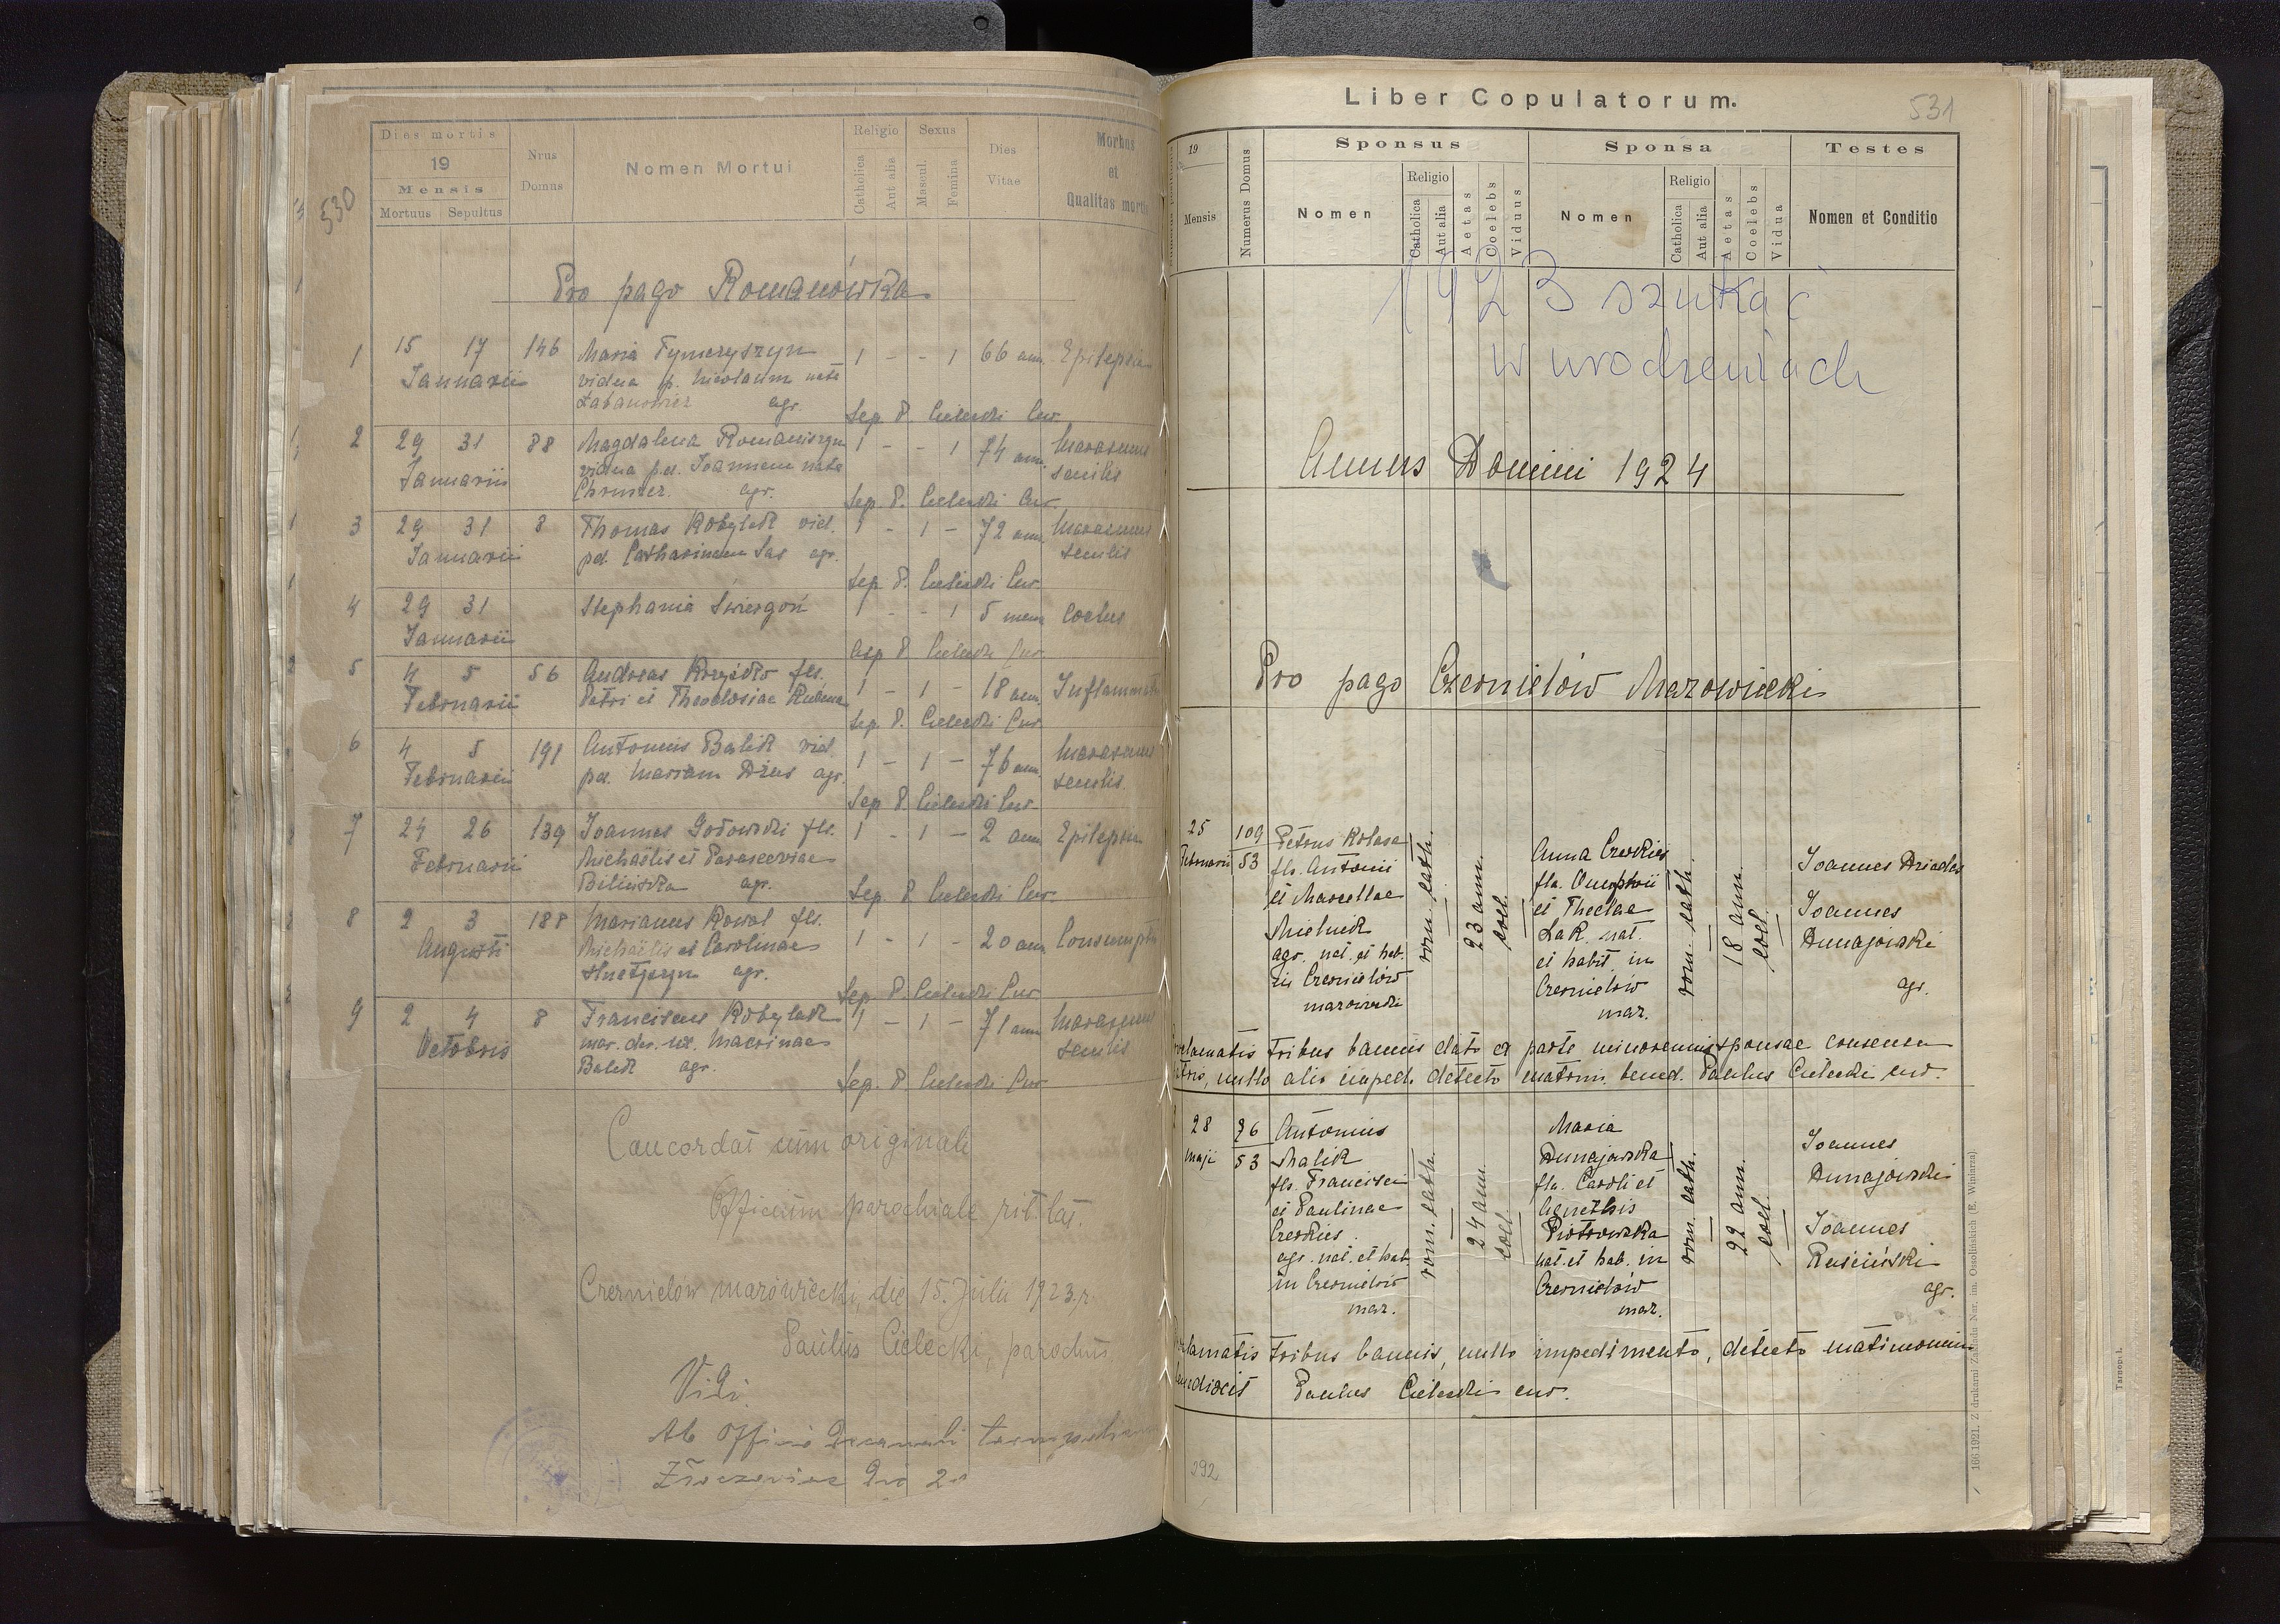 530
Dies mortis
19
Mensis
Mortuus Sepultus
Nrus Domus
Nomen Mortui
Religio
Catholica
Aut alia
Sexus
Mascul.
Femina
Dies Vitae
Morbus
et
Qualitas mortis
Pro pago Romanówka
1 15 17 146 Maria Tymczyszyn 1 - - 1 66 ann. Epilepsia
Januarii vidua p. Nicolaum nata
agr. Sep. P. Cielecki Cur.
2 29 31 88 Magdalena Romaniszyn 1 - - 1 74 ann. Marasmus
Januarii vidua p.d. Joannem nata senilis
agr. Sep. P. Cielecki Cur.
3 29 31 8 Thomas Kobylak vid. 1 - 1 - 72 ann. Marasmus
Januarii pd. Catharinam Sas agr. senilis
Sep. P. Cielecki Cur.
4 29 31 Stephania Świergoń 1 - - 1 5 mens.
Januarii
Sep P. Cielecki Cur.
5 4 5 56 Andreas fls. 1 - 1 - 18 ann.
Februarii Petri et Theodosiae
Sep. P. Cielecki Cur.
6 4 5 191 Antonius Balik vid. 1 - 1 - 76 ann. Marasmus
Februarii pd. Mariam agr. senilis.
Sep P. Cielecki Cur.
7 24 26 139 Joannes fls. 1 - 1 - 2 ann. Epilepsia
Februarii Michaëlis et Parasceviae
Bilińska agr. Sep. P. Cielecki Cur.
8 2 3 188 Marianus Kowal fls. 1 - 1 - 20 ann.
Augusti Michaëlis et Carolinae
agr. Sep. P. Cielecki Cur
9 2 4 8 Franciscus Kobylak 1 - 1 - 71 ann. Marasmus
Octobris mar. der. ux. Macrinae senilis
Balik agr. Sep. P. Cielecki Cur
Concordat cum originale
Officium parochiale rit. lat.
Czernielów mazowiecki, die 15. Julii 1923 r.
Paulus Cielecki, parochus
Vidi.
Ab Officio Decanali
Liber Copulatorum.
531
19
Mensis
Numerus Domus
Sponsus
Nomen
Religio
Catholica
Aut alia
Aetas
Coelebs
Viduus
Sponsa
Nomen
Religio
Catholica
Aut alia
Aetas
Coelebs
Vidua
Testes
Nomen et Conditio
1923 szukać
w urodzeniach
Annus Domini 1924
Pro pago Czernielów Mazowiecki
25 109
Februarii 53
Petrus Kolasa
fls. Antonii
et Marcellae
Mielnik
agr. nat. et hab.
in Czernielów
mazowiecki
rom. cath.
23 ann.
coel.
Anna Czerkies
fla. Onuphrii
et Theclae
Łak. nat.
et habit. in
Czernielów
maz.
rom. cath.
18 ann.
coel.
Joannes Dziadas
Joannes
Dunajewski
agr.
tribus bannis dato ex parte minorennis sponsae consensu
nullo alio imped. detecto matrim. bened. Paulus Cielecki cur.
28 76
Maji 53
Antonius
Malik
fls. Francisci
et Paulinae
Czerkies
agr. nat. et hab.
in Czernielów
maz.
rom. cath.
24 ann.
coel.
Maria
Dunajewska
fla. Caroli et
Piotrowska
nat. et hab. in
Czernielów
maz.
rom. cath.
22 ann.
coel.
Joannes
Dunajewski
Joannes
Ruściński
agr.
tribus bannis, nullo impedimento, detecto matimonium
Paulus Cielecki cur.
292
166/1921. Z drukarni Zakładu Nar. im. Ossolińskich (E. Winiarza)
Tarnopol.